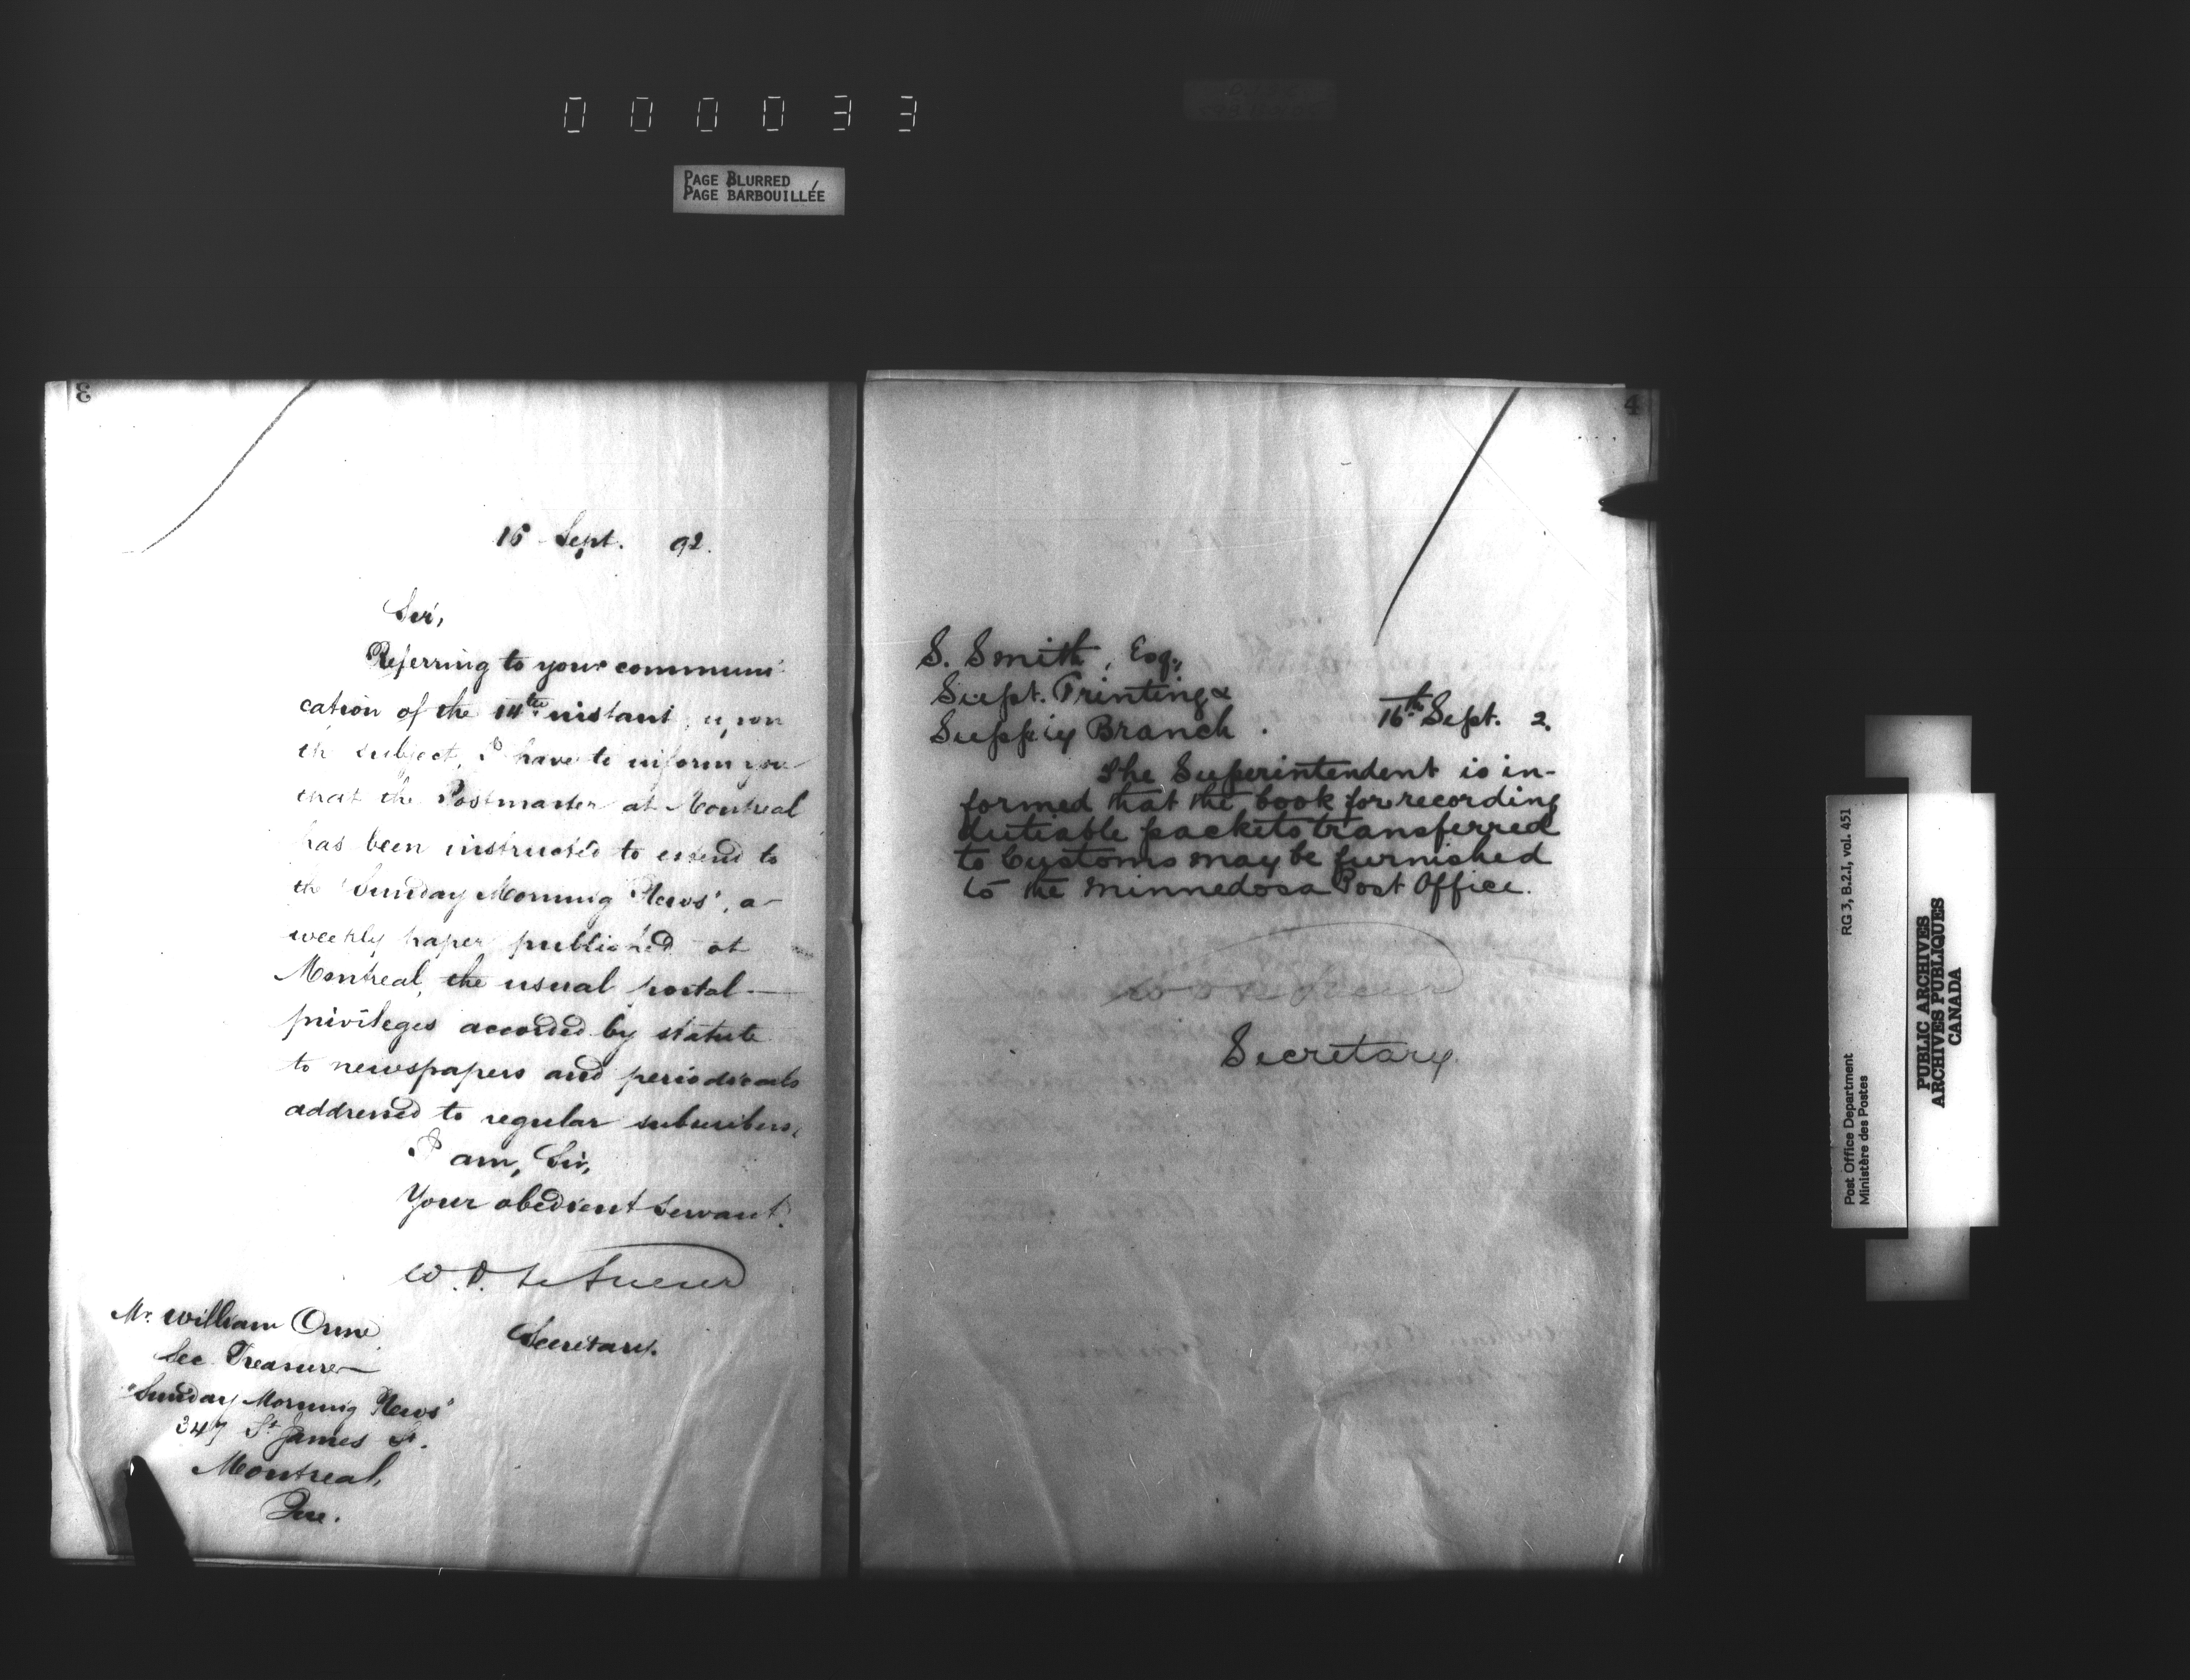 000033
PAGE BLURRED
PAGE BARBOUILLÉE
3
16 Sept. 92.
Sir,
Referring to your communi-
cation of the 14th instant, upon
the subject, I have to inform you
that the Postmaster at Montreal
has been instructed to extend to
the "Sunday Morning News", a
weekly paper published at
Montreal, the usual postal
privileges accorded by statute
to newspapers and periodicals
addressed to regular subscribers.
I am, Sir,
Your obedient servant.
W. D. LeSueur
Secretary.
Mr. William Orme
Sec Treasurer
"Sunday Morning News"
347 St James St.
Montreal,
Que.
4
S. Smith, Esq.,
Supt. Printing &
Supply Branch.
16th Sept. 2.
The Superintendent is in-
formed that the book for recording
dutiable packets transferred
to Customs may be furnished
to the Minnedosa Post Office.
W D LeSueur
Secretary.
Post Office Department
Ministère des Postes
RG 3, B.2.I, vol. 451
PUBLIC ARCHIVES
ARCHIVES PUBLIQUES
CANADA